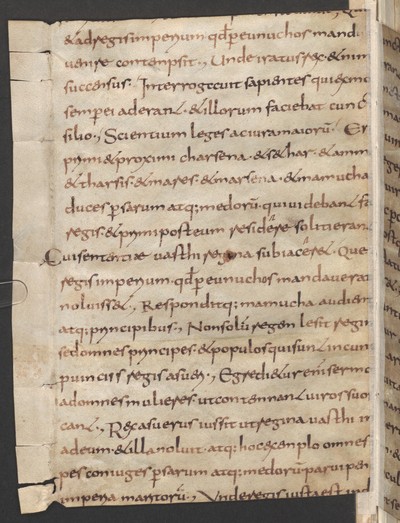 & ad regis imperium qđ ꝑ eunuchos mand
uenire contempsit ., Unde iratus rex. & nim
succensus. Interrogauit sapientes qui ex mo
semper ei aderant. & illorum faciebat cun cō
silio ., Scientium leges ac iura maiorū. Er
primi & proximi charsena. & sethar. & adm
& tharsis. & mares. & marsena. & mamucha
duces ꝑsarum atq: medorū. qui uidebant fa
regis. & primi post eum residere soliti eran
Cui sententiae uasthi regina subiaceret. Que
regis imperium. qđ ꝑ eunuchos mandauerat
noluisset ., Responditq: mamucha. audien
atq: principibus ., Non solū regem lesit regin
sed omnes principes. & populos qui sunt in cun
prouinciis regis asueri ., Egredietur enim sermo
ad omnes mulieres. ut contemnant uiros suos
cant ., Rex asuerus iussit ut regina uasthi in
ad eum. & illa noluit. atq: hoc exemplo omnes
pes coniuges ꝑsarum atq: medorū parui pen
imperia maritorū ., Unde regis iusta est ind